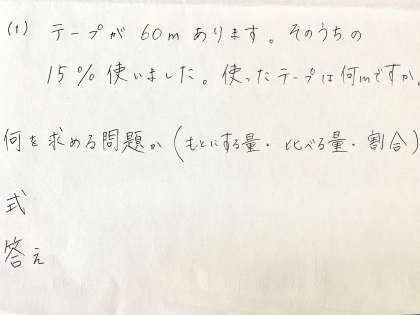 (1) テープが 60m あります。そのうちの
15% 使いました。使ったテープは何mですか。
何を求める問題か(もとにする量・比べる量・割合)
式
答え